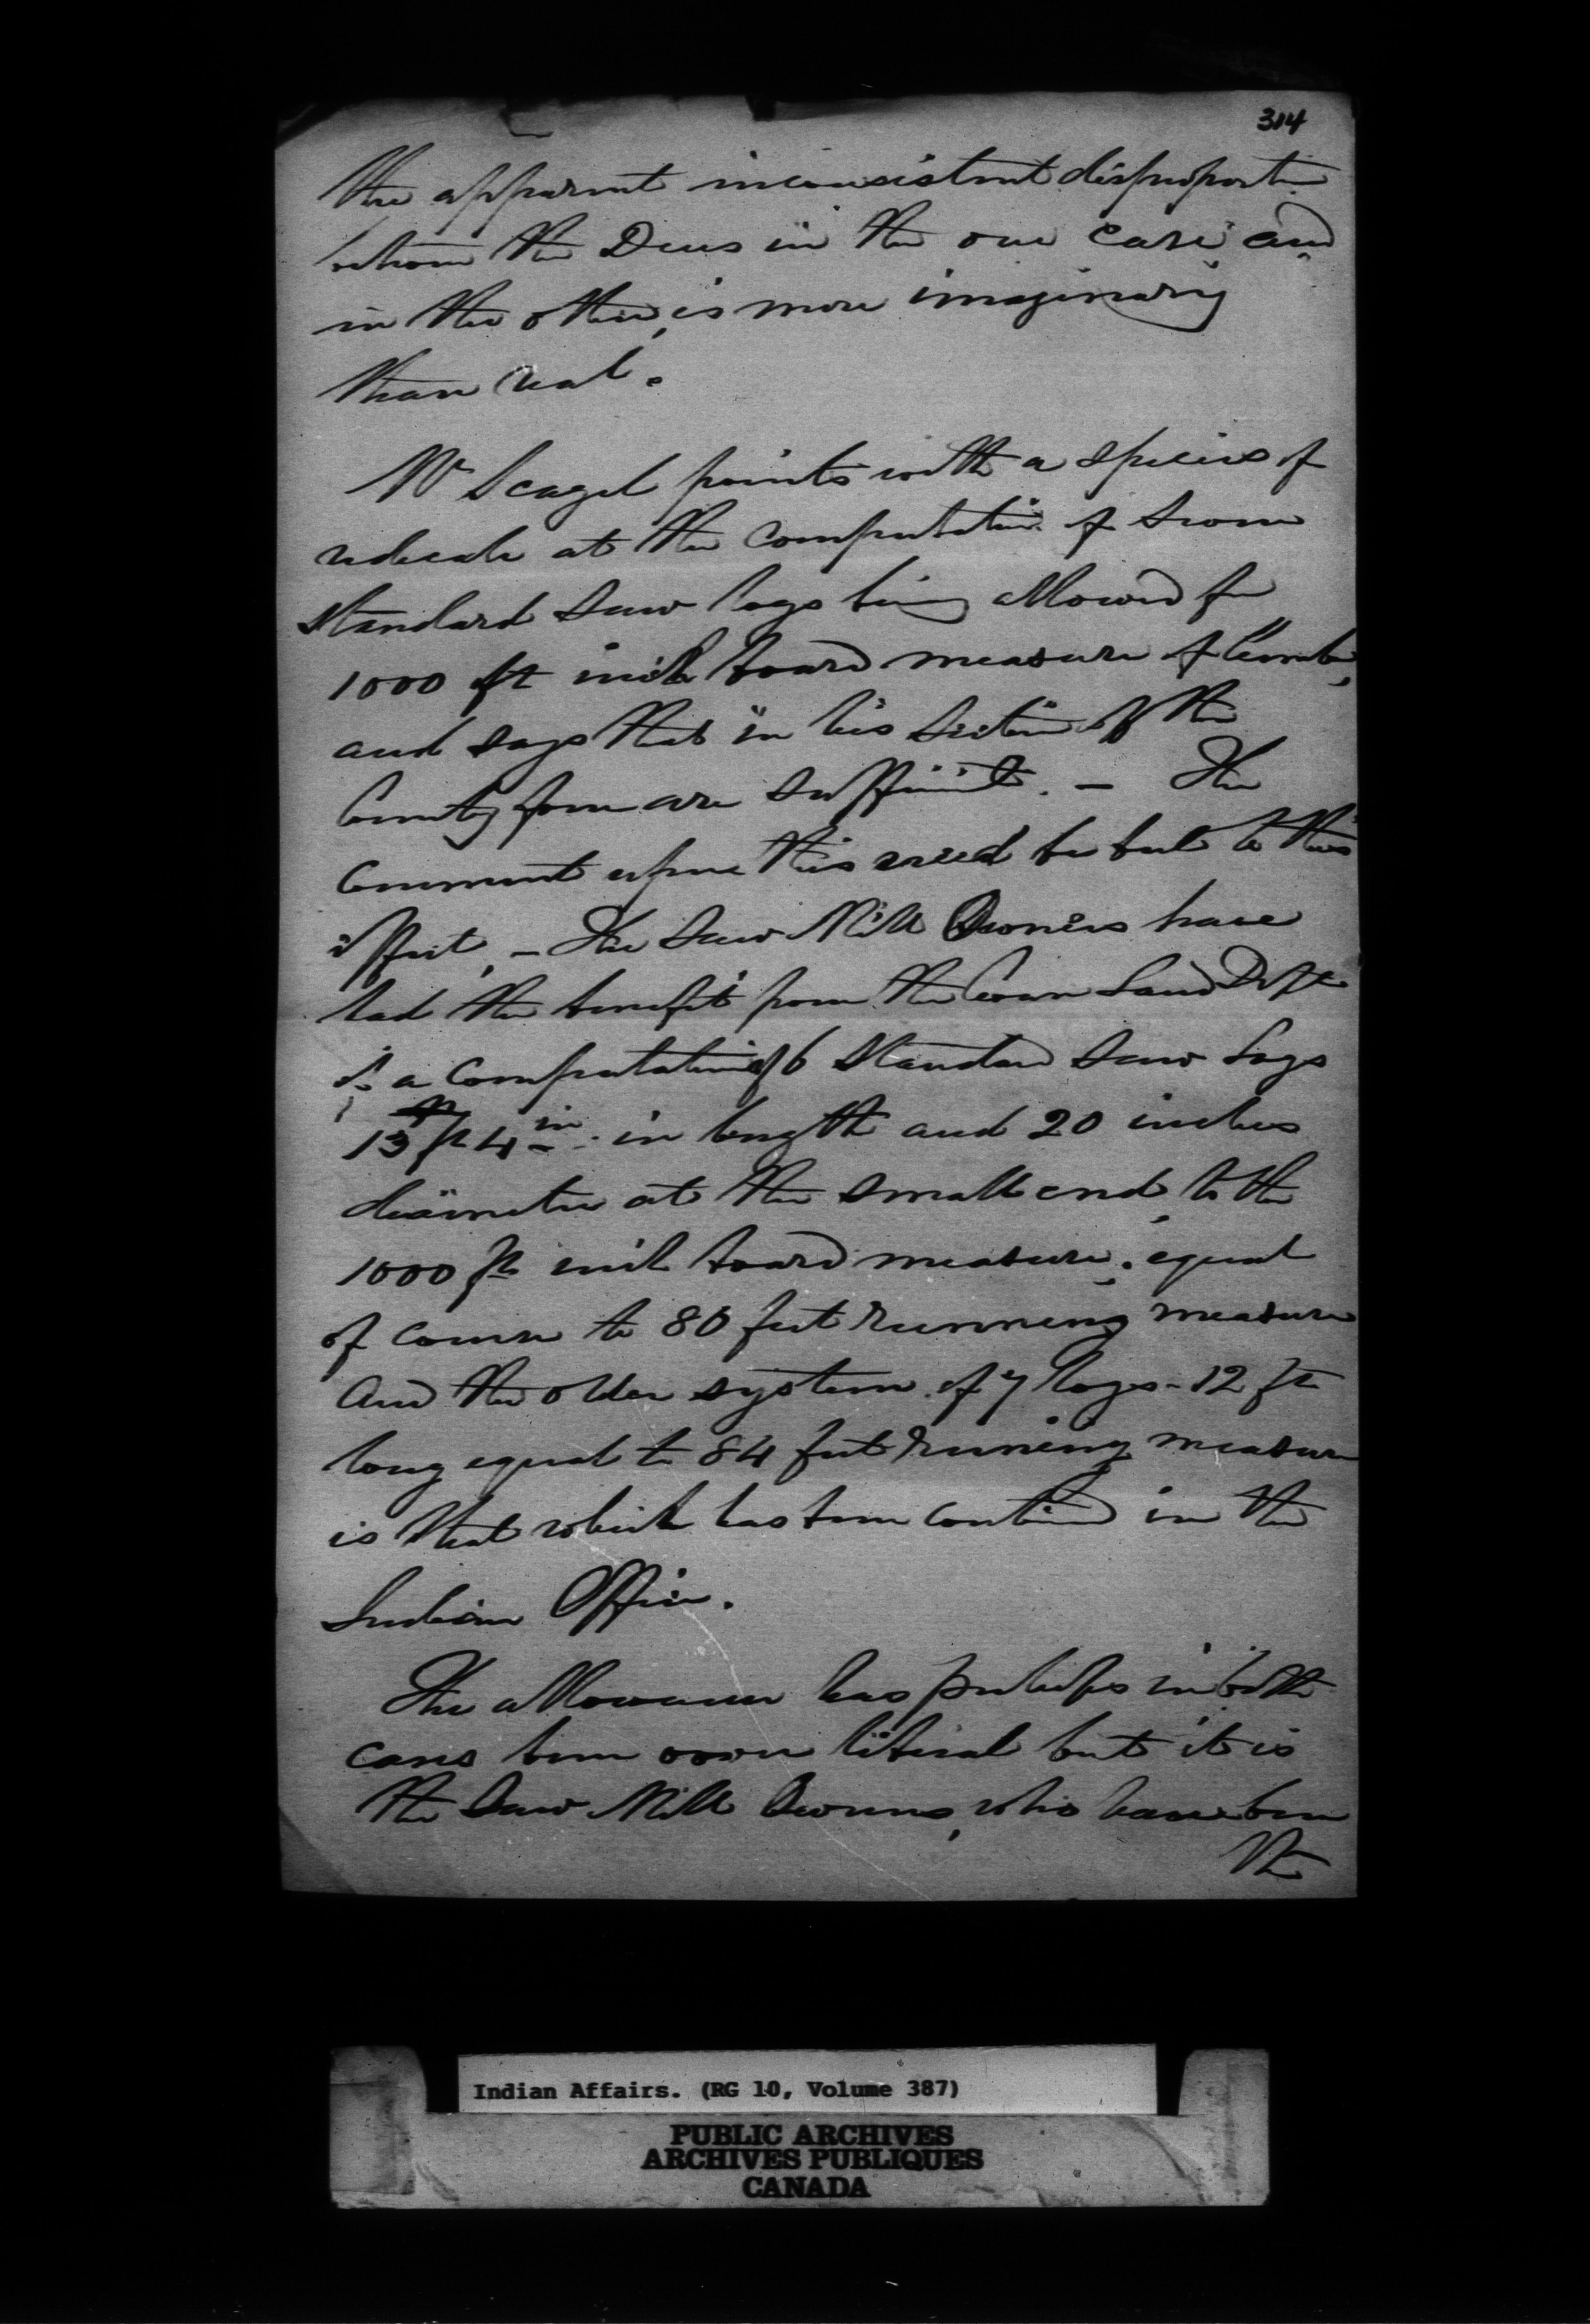 314
the apparent inconsistent disproportion
between the Dues in the one case and
in the other, is more imaginary
than real.
Mr Scagel points with a species of
ridicule at the computation of seven
standard Saw logs being allowed for
1000 ft inch board measure of lumber,
and says that in his section of the
Country four are sufficient. - The
Comment upon this need be but to this
effect, - The Saw Mill Owners have
had the benefit from the Crown Land Dept
of a computation of 6 Standard Saw Logs
13 ft 4 in in length and 20 inches
diameter at the small end, to the
1000 ft inch board measure; equal
of course to 80 feet running measure
And the older system of 7 logs - 12 ft
long equal to 84 feet running measure
is that which has been continued in the
Indian Office.
The allowance has perhaps in both
cases been over liberal but it is
the Saw Mill Owners, who have been
the
Indian Affairs. (RG 10, Volume 387)
PUBLIC ARCHIVES
ARCHIVES PUBLIQUES
CANADA